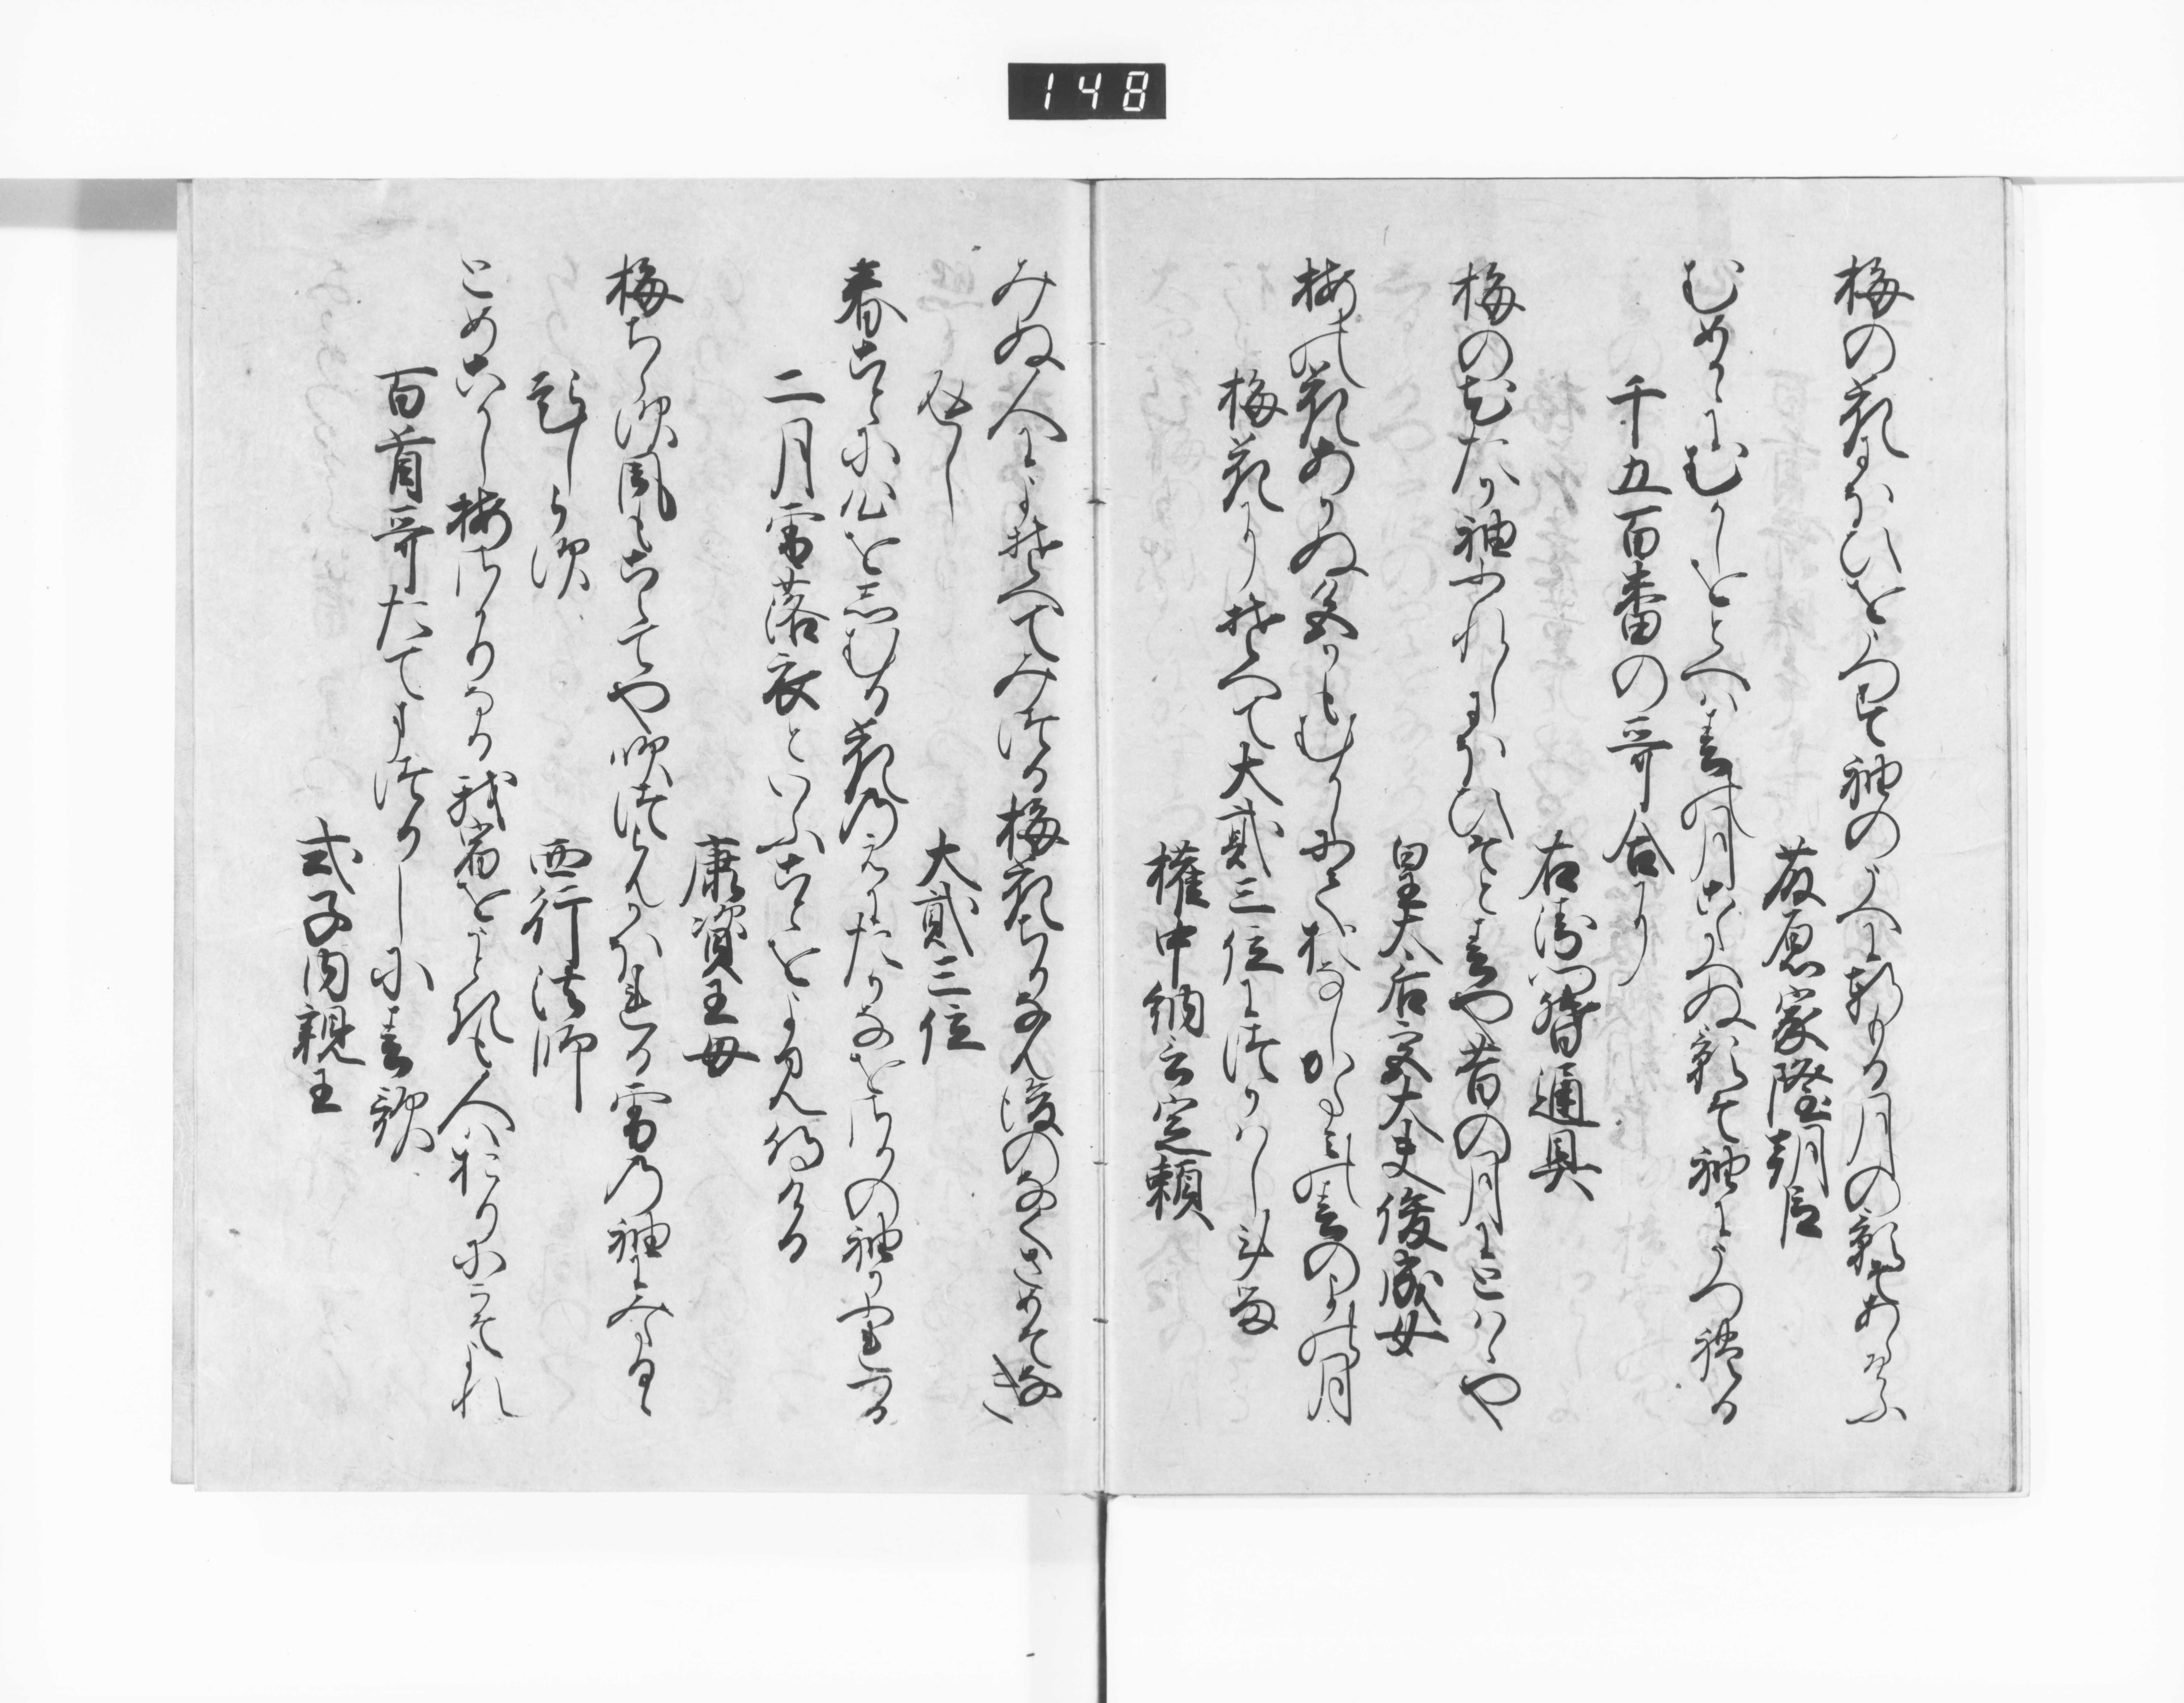 148
梅の花にほひをうつす袖のうへに軒もる月の影そあらそふ
藤原家隆朝臣
むめかゝにむかしをとへは春の月こたへぬ影そ袖にうつれる
千五百番の哥合に
右衛門督通具
梅の花たか袖ふれしにほひそと春や昔の月にとはゝや
皇太后宮大夫俊成女
梅の花あかぬ色かもむかしにておなしかたみの春のよの月
梅花にそへて大貳三位につかはしける
権中納言定頼
みぬ人によそへてみつる梅花ちりなん後のなくさめそなき
返し
大貳三位
春ことに心をしむる花のえにたかなをさりの袖かふれつる
二月雪落衣といふことをよみ侍ける
康資王母
梅ちらす風もこえてや吹つらんかほれる雪の袖にみたるゝ
題しらす
西行法師
とめこかし梅さかりなる我宿をうときも人はおりにこそよれ
百首哥たてまつりしに春歌
式子内親王